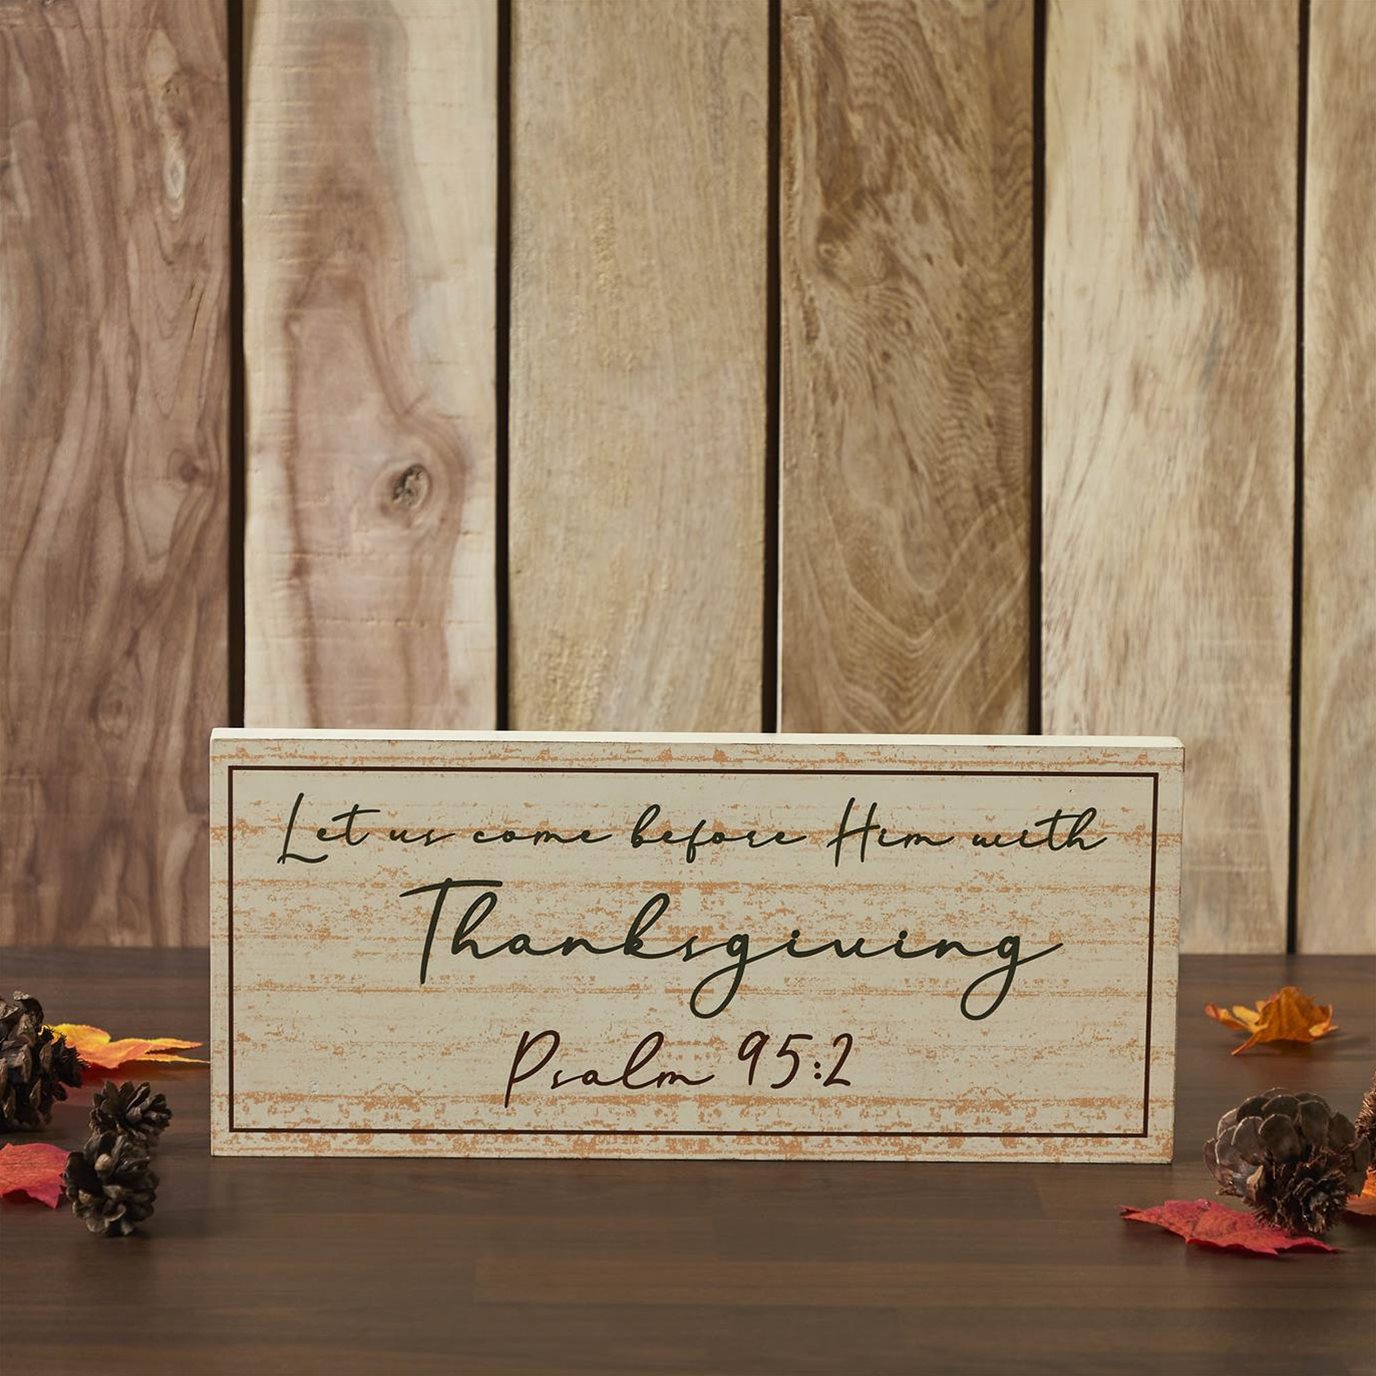 Let us come before Him with
Thanksgiving
Psalm 95:2